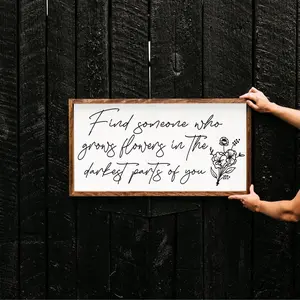 Find someone who
grows flowers in the
darkest parts of you